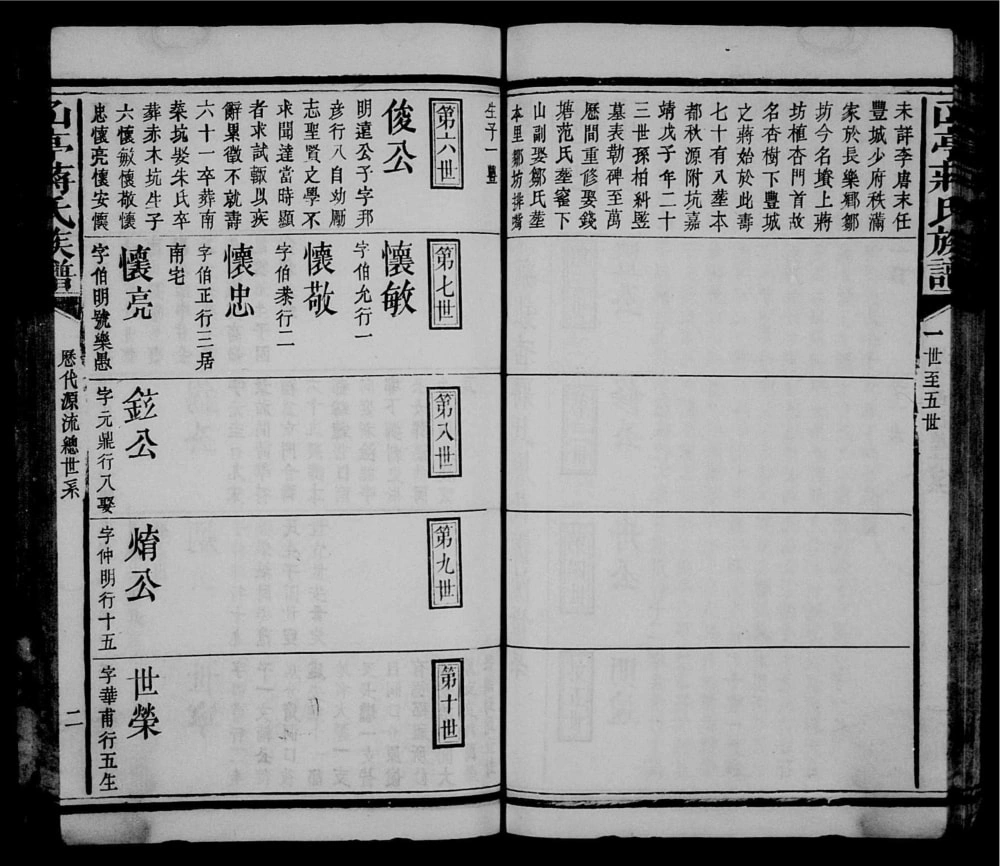 一世至五世
未詳李唐末任
豐城少府秩滿
家於長樂鄉鄒
坊今名墳上蔣
坊植杏門首故
名杏樹下豐城
之蔣始於此壽
七十有八塟本
都秋源附坑嘉
靖戊子年二十
三世孫柏科竪
墓表勒碑至萬
歷間重修娶錢
塘范氏塟窑下
山副娶鄒氏塟
本里鄒坊排嘴
生子一豐
第六世
俊公
明遠公子字邦
彦行八自幼勵
志聖賢之學不
求聞達當時顯
者求試輒以疾
辭累徵不就壽
六十一卒葬南
棻坑娶朱氏卒
葬赤木坑生子
六懷敏懷敬懷
忠懷亮懷安懷
第七世
懷敏
字伯允行一
懷敬
字伯恭行二
懷忠
字伯正行三居
南宅
懷亮
字伯明號樂愚
第八世
鉉公
字元鼎行八娶
第九世
焴公
字仲明行十五
第十世
世榮
字華甫行五生
亭蔣氏族譜
歷代源流總世系
二